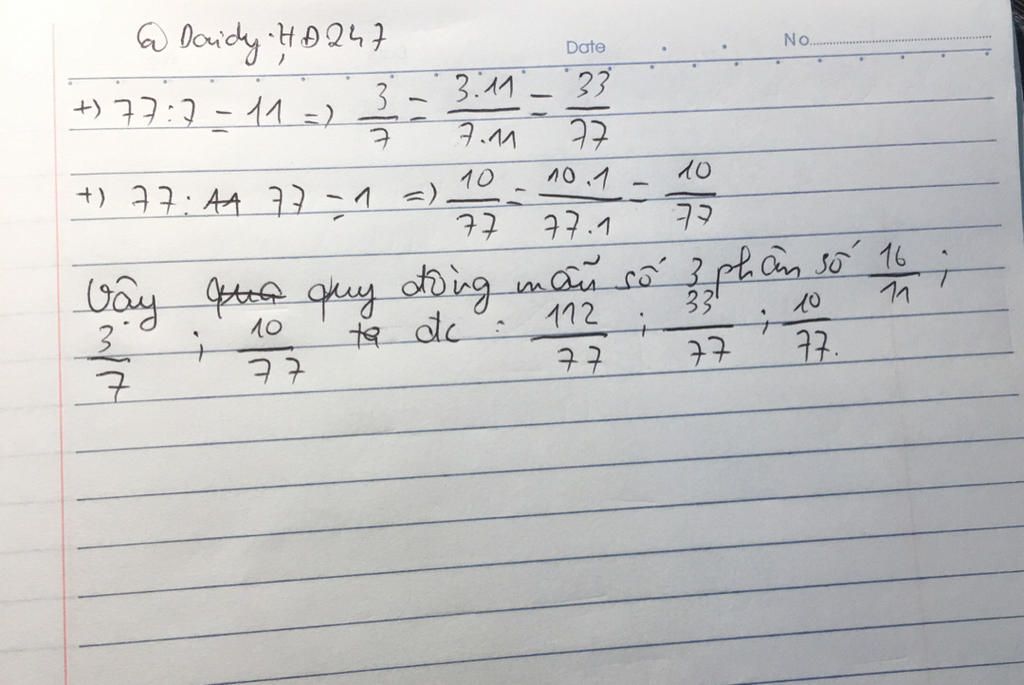 @ Daidy.HĐ247
Date No
+) 77:7 = 11 => 3/7 = 3.11/7.11 = 33/77
+) 77: 77 = 1 => 10/77 = 10.1/77.1 = 10/77
Vây quy đông mẫu số 3 phân số 16/11 ;
3/7 ; 10/77 ta đc : 112/77 ; 33/77 ; 10/77.